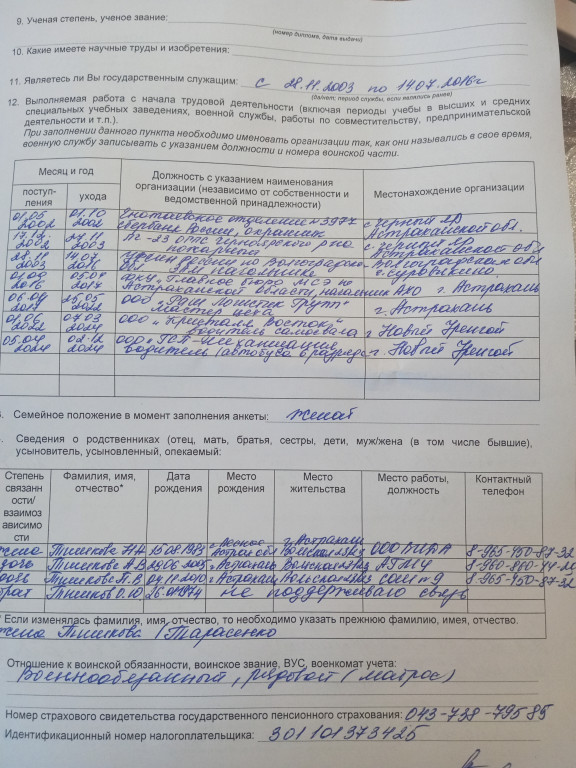 9. Ученая степень, ученое звание:
(номер диплома, дата выдачи)
10. Какие имеете научные труды и изобретения:
11. Являетесь ли Вы государственным служащим: с 28.11.2003 по 14.07.2016г
(да/нет; период службы, если являлись ранее)
12. Выполняемая работа с начала трудовой деятельности (включая периоды учебы в высших и средних
специальных учебных заведениях, военной службы, работы по совместительству, предпринимательской
деятельности и т.п.).
При заполнении данного пункта необходимо именовать организации так, как они назывались в свое время,
военную службу записывать с указанием должности и номера воинской части.
Месяц и год
поступ-
ления
ухода
Должность с указанием наименования
организации (независимо от собственности и
ведомственной принадлежности)
Местонахождение организации
01.05 2002 01.10 2002 Енотаевское отделение №3977 Сбербанк России, охранник с. Черный Яр Астраханской обл.
17.12 2002 27.11 2003 ПЧ-23 ОГПС Черноярского р-на пожарный с. Черный Яр Астраханской обл
28.11 2003 14.07 2016 Волгоградской обл. г. Суровикино.
2016 2017 ФКУ "Главное бюро МСЭ по Астраханской области, начальник АХО г. Астрахань
06.04 25.05 2022 ООО Логистик Групп" Мастер цеха г. Астрахань
01.06 2022 07.03 2024 ООО "Кристалл Восток" водитель самосвала г Новый Уренгой
05.04 2024 02.12 2024 ООО "ГСП-Механизация" водитель (автобуса 6 разряда г. Новый Уренгой
Семейное положение в момент заполнения анкеты: женат
Сведения о родственниках (отец, мать, братья, сестры, дети, муж/жена (в том числе бывшие),
усыновитель, усыновленный, опекаемый:
Степень
связанн
ости/
взаимоз
ависимо
сти
Фамилия, имя,
отчество*
Дата
рождения
Место
рождения
Место
жительства
Место работы,
должность
Контактный
телефон
жена Тишкова Н.Н 15.08.1983 с. Лесное Астрах обл г. Астрахань ООО 8-965-450-87-32
дочь Тишкова А.В 2005 г. Астрахань АГМУ
дочь Тишкова П.В 04.11.2010 г. Астрахань
брат Тишков О.Ю 26.01.1974 не поддерживаю связь
* Если изменялась фамилия, имя, отчество, то необходимо указать прежнюю фамилию, имея, отчество.
жена Тишкова (Тарасенко
Отношение к воинской обязанности, воинское звание, ВУС, военкомат учета:
Военнообязанный, рядовой (матрос)
Номер страхового свидетельства государственного пенсионного страхования: 043-738-79585
Идентификационный номер налогоплательщика: 301101373425